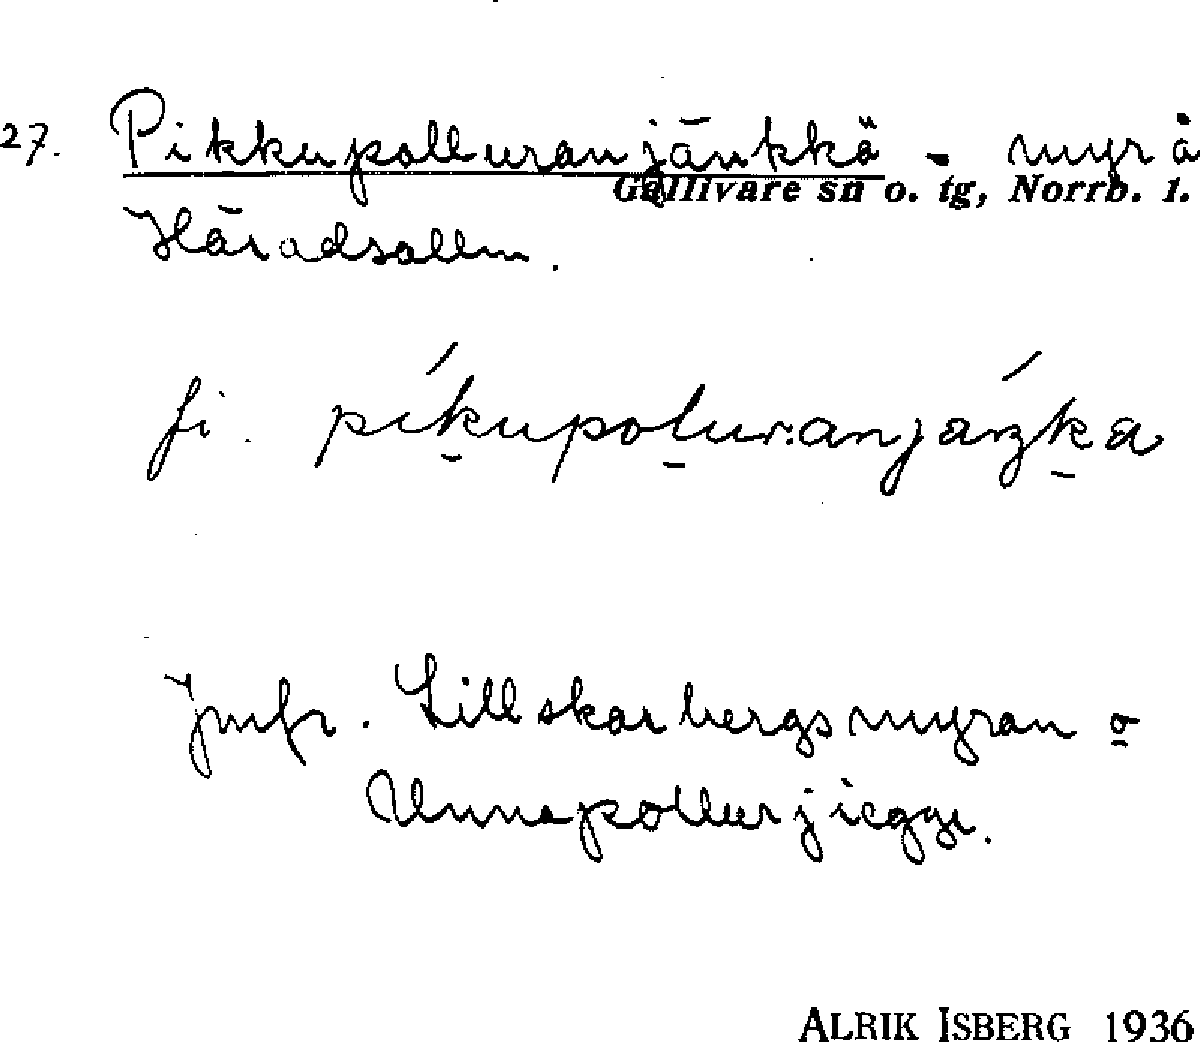 27. Pikkupolluranjänkkä - myr å
Gällivare sn o. tg, Norrb. l.
Häradsallm.
fi. píkupolur:anjáŋka
jmfr. Lillskarbergsmyran o
Unnapollurjiegge.
ALRIK ISBERG 1936